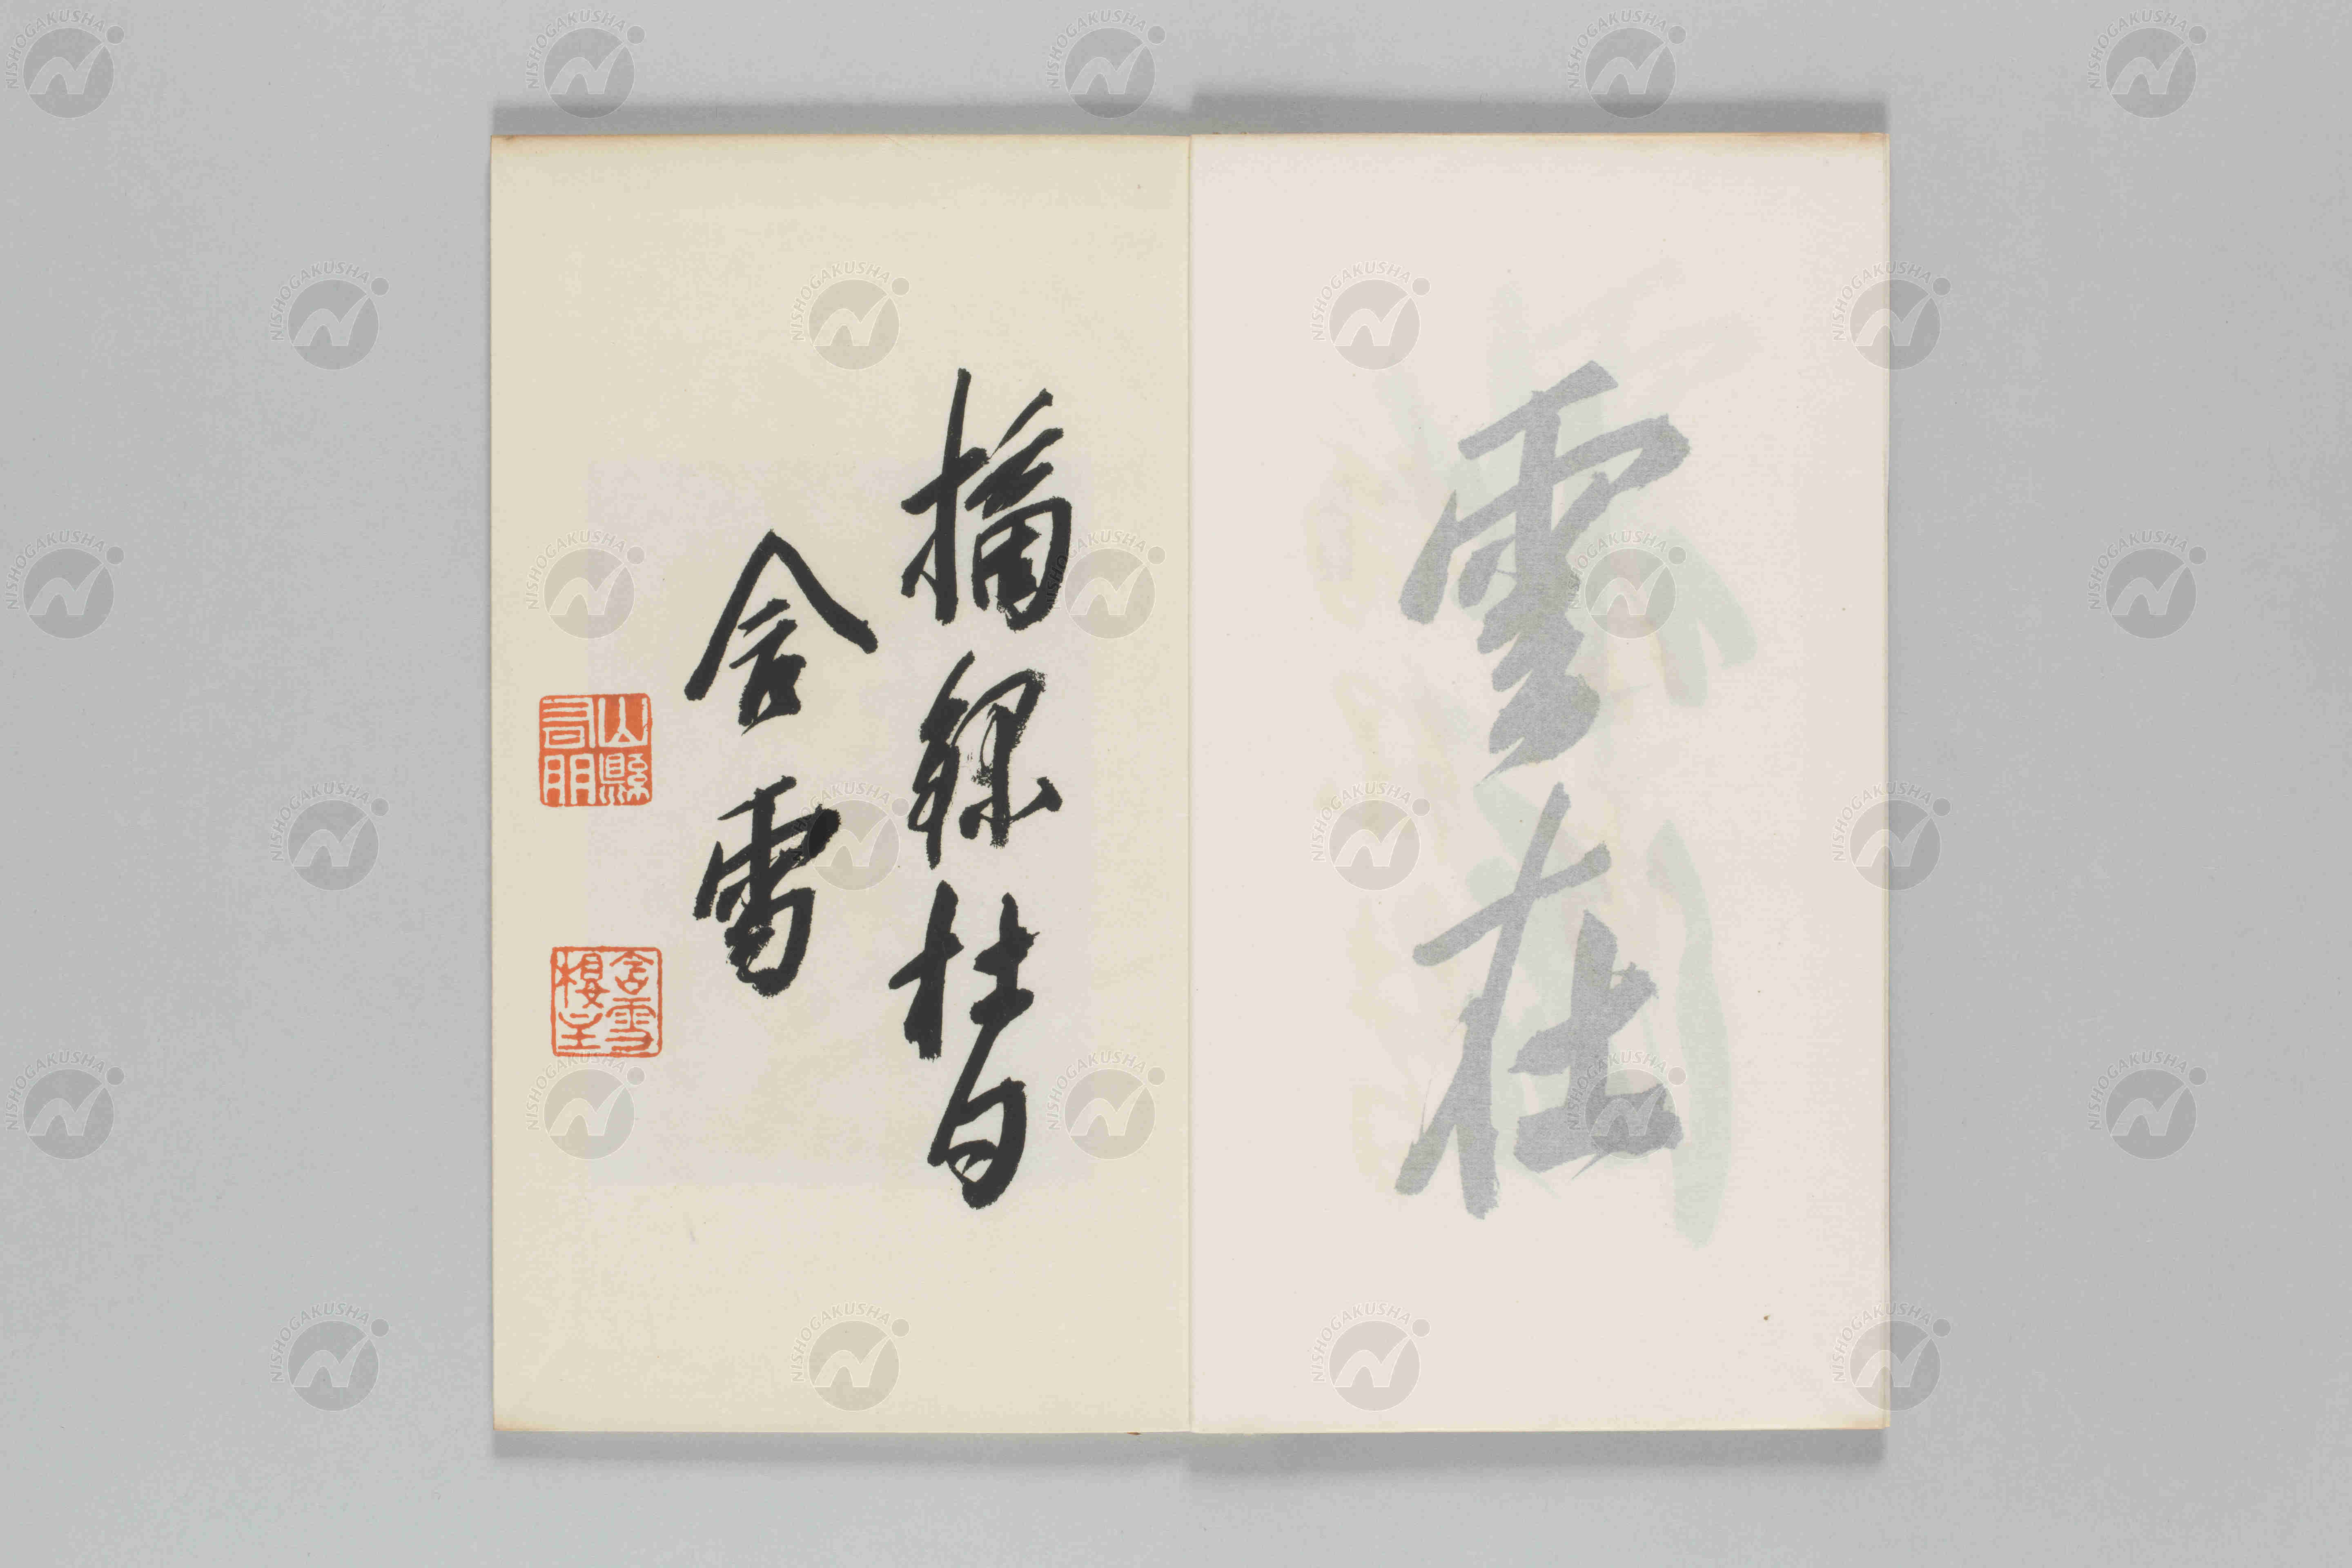 雲在
摘録杜句
含雪
山縣有朋
含雪樓主
NISHOGAKUSHA